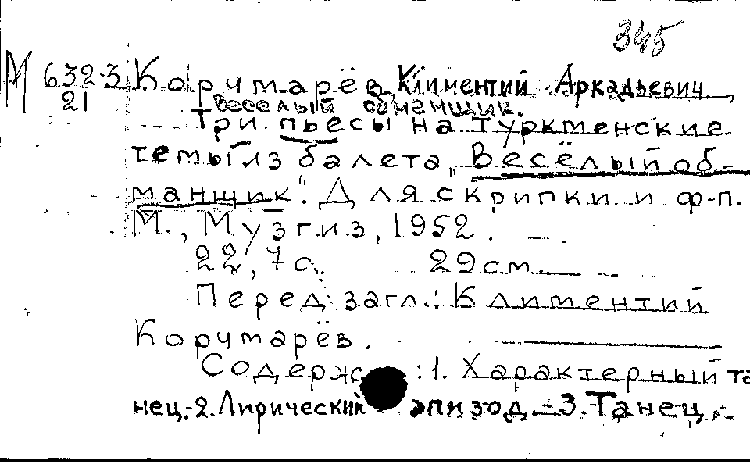 345
М 632-3 Корчмарёв, Климентий Аркадьевич,
21 Веселый обманщик.
Три пьесы на туркменские
темы из балета „Весёлый об-
манщик". Для скрипки и ф-п.
М., Музгиз, 1952.
22, 7 с. 29 см.
Перед загл.: Климентий
Корчмарёв.
Содерж : 1. Характерный та
нец.-2. Лирический эпизод.-3. Танец.-